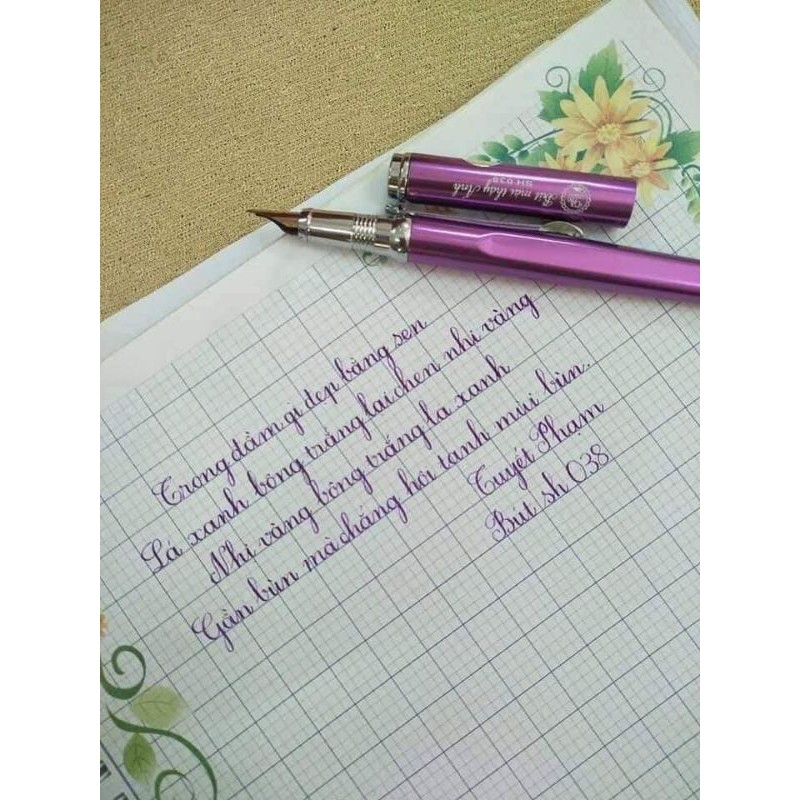 Bút mài thầy Ánh
SH 038
Trong đầm gì đẹp bằng sen
Lá xanh bông trắng lại chen nhị vàng
Nhị vàng bông trắng lá xanh
Gần bùn mà chẳng hôi tanh mùi bùn.
Tuyết Phạm
Bút sh 038